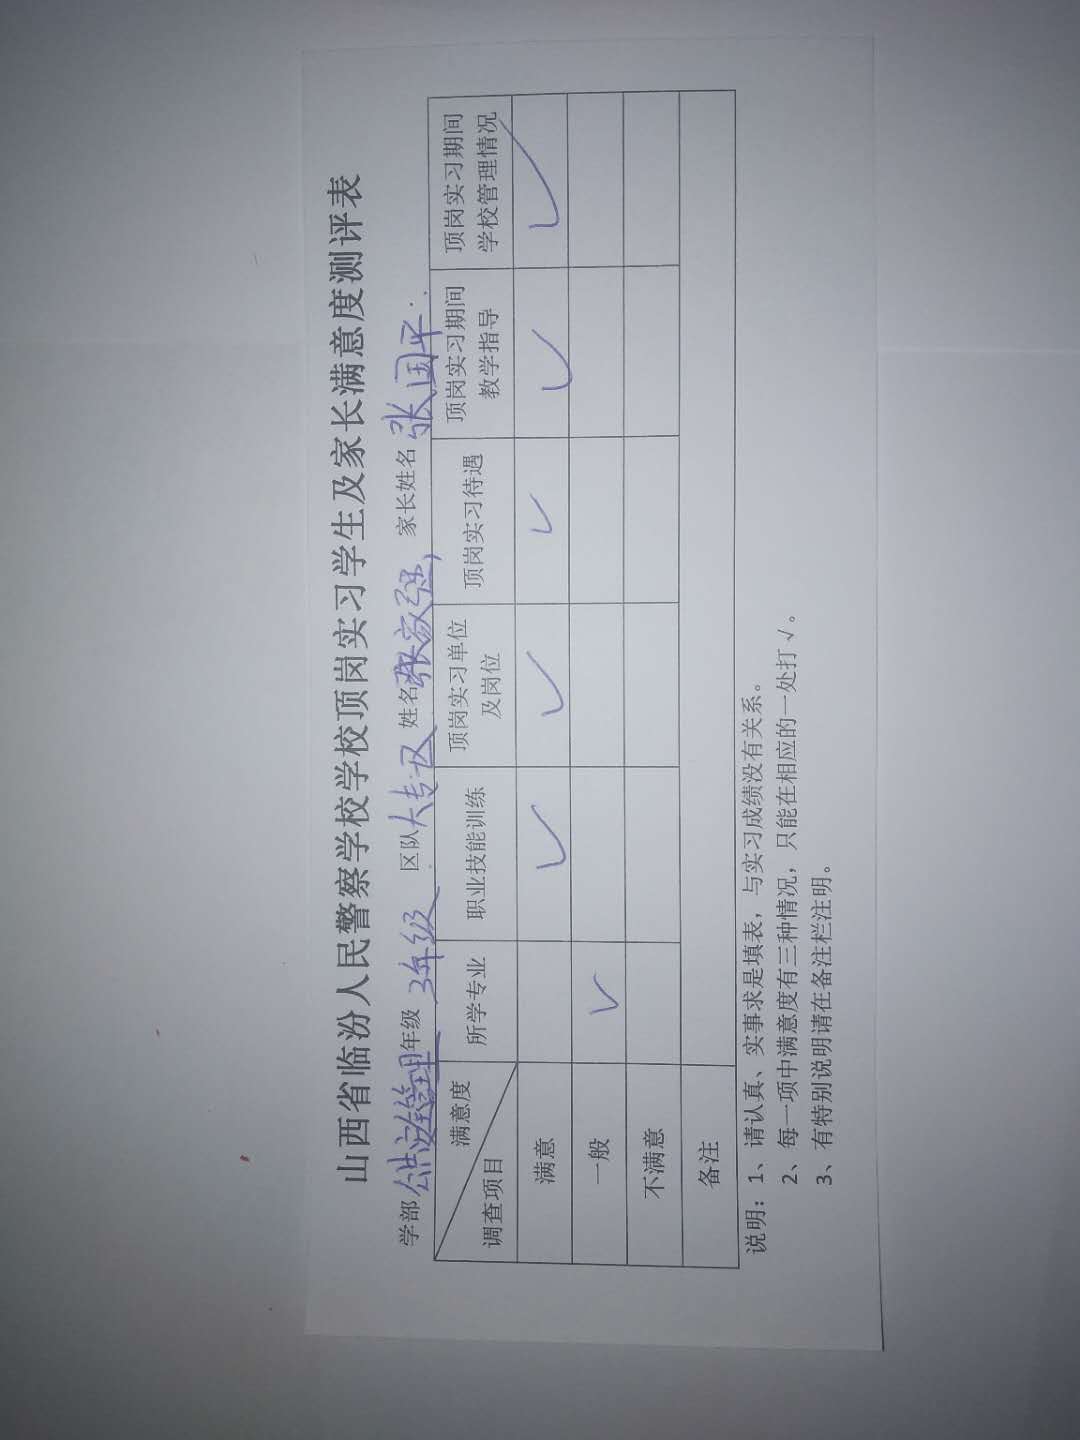 山西省临汾人民警察学校学校顶岗实习学生及家长满意度测评表
学部 公共治理 年级 3年级 区队 大专区 姓名 张家强 家长姓名 张国平
满意度 调查项目 所学专业 职业技能训练 顶岗实习单位及岗位 顶岗实习待遇 顶岗实习期间教学指导 顶岗实习期间学校管理情况
满意 ✓ ✓ ✓ ✓ ✓
一般 ✓
不满意
备注
说明：1、请认真、实事求是填表，与实习成绩没有关系。
2、每一项中满意度有三种情况，只能在相应的一处打√。
3、有特别说明请在备注栏注明。